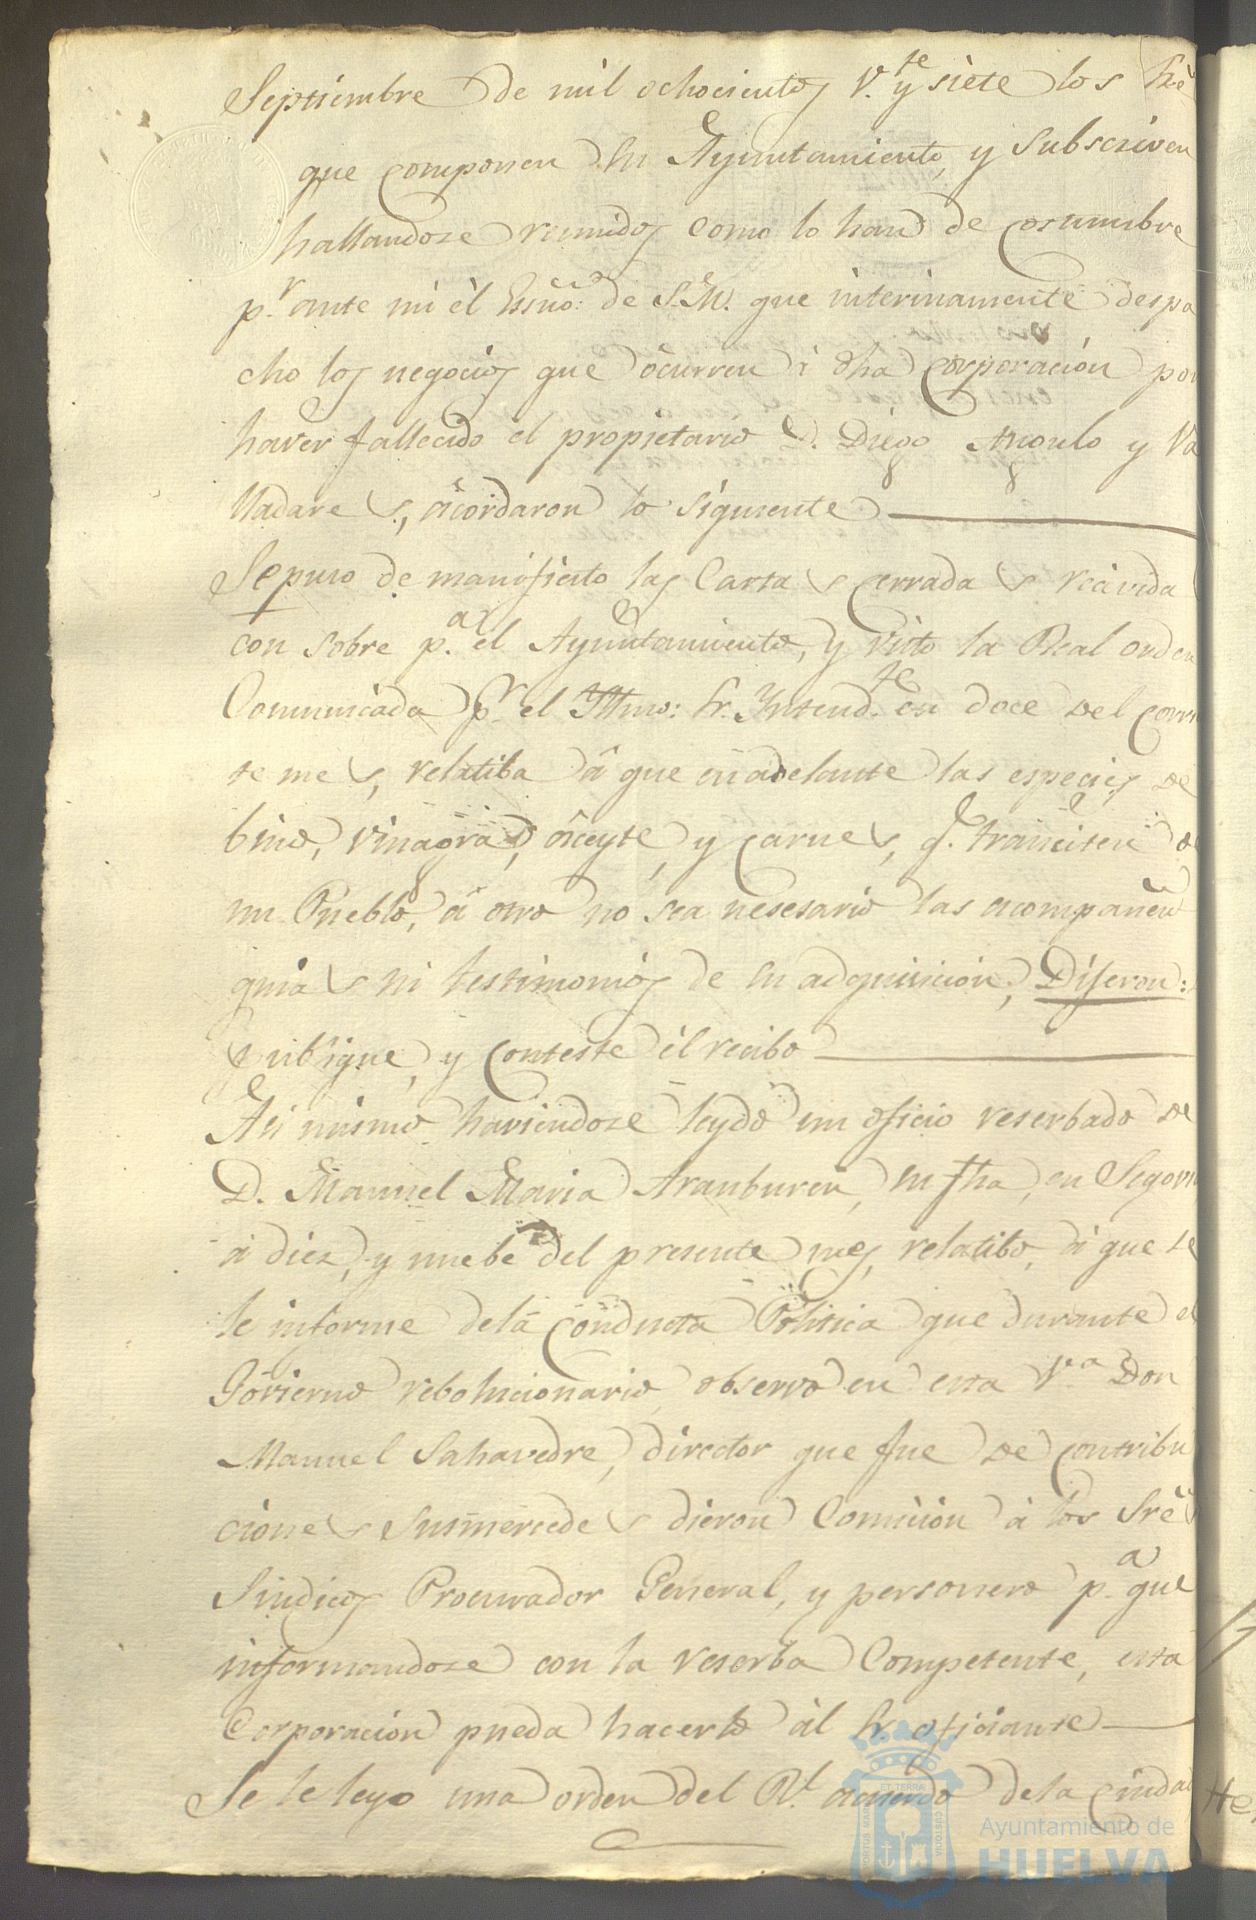 Septiembre de mil ochocientos v.te y siete los Sres
que componen su Ayuntamiento, y subscriven
hallandose reunidos como lo han de costumbre
p.r ante mi él Essno: de S.M. que interinamente despa
cho los negocios que ocurren á dha Corporación por
haver fallecido el propietario D. Diego Angulo y Va
lladares, acordaron lo siguiente
Se puso de manifiesto las Cartas cerradas recivida
con sobre p.a el Ayuntamiento, y visto la Real orden
Comunicada p.r el Yltmo: Sr. Yntend.te en doce del corrien
te mes, relatiba á que en adelante las especies de
bino, vinagra, aceyte, y carnes, q.e transiten de
un Pueblo, á otro no sea nesesario las acompañen
guias ni testimonios de su adquisicion, Dijeron:
publique, y conteste él recibo
Asi mismo haviendose leydo un oficio reserbado de
D. Manuel Maria Aranburen, su fha, en Segovia
á diez, y nuebe del presente mes, relatibo, á que se
le informe de la conducta Politica que durante el
Govierno rebolucionario observo en esta V.a Don
Manuel Sahavedre, director que fue de contribu
ciones sus mercedes dieron Comicion á los Sres
Sindicos Procurador General, y personero p.a que
informandose con la reserba Competente, esta
Corporación pueda hacerlo ál Sr. oficiante
Se le leyo una orden del R.l acuerdo de la Ciudad
ET TERRA
PORTUS MARIS
CUSTODIA
Ayuntamiento de
HUELVA